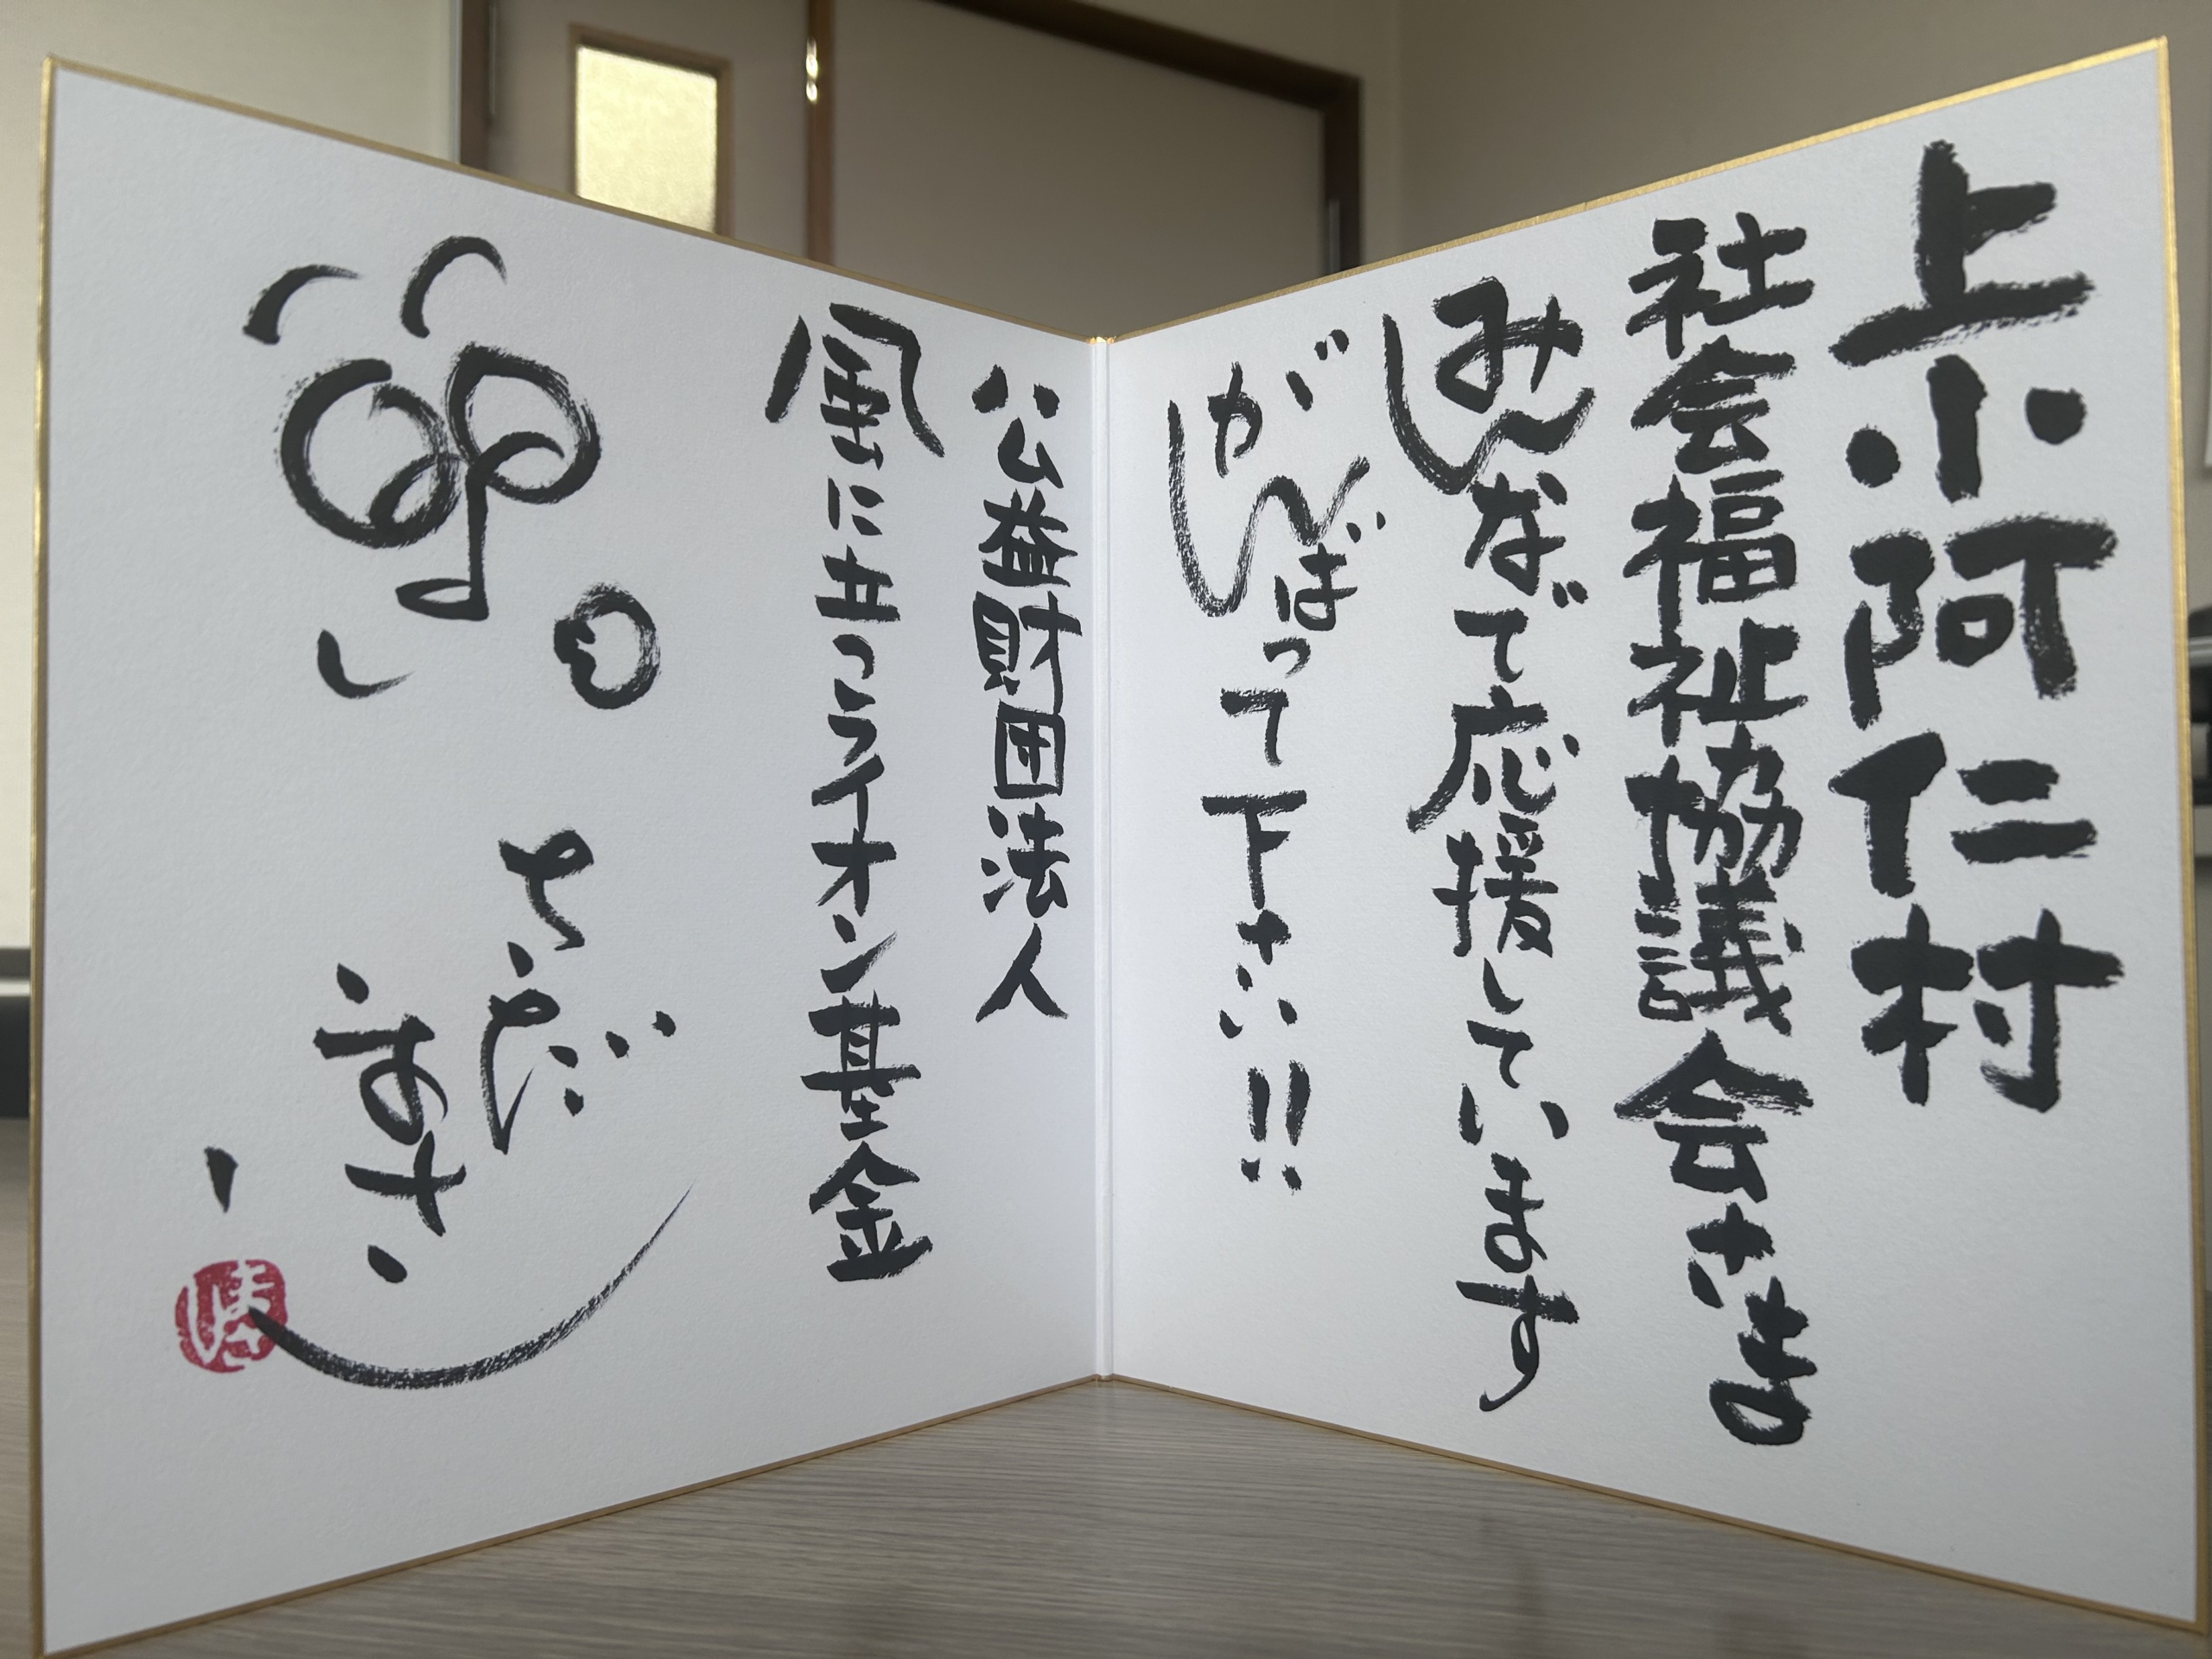 上小阿仁村
社会福祉協議会さま
みんなで応援しています
がんばって下さい!!
公益財団法人
風に立つライオン基金
さだ
まさし